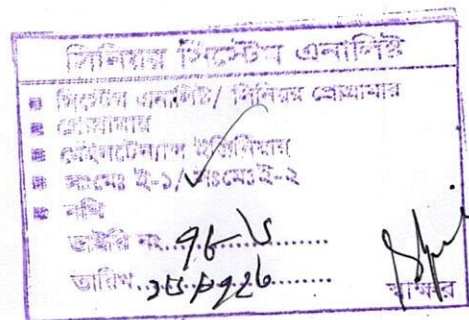 সিনিয়র সিস্টেম এনালিস্ট
সিস্টেম এনালিস্ট/ সিনিয়র প্রোগ্রামার
প্রোগ্রামার
মেইনটেন্যান্স ইঞ্জিনিয়ার
সঃমেঃ ই-১/সঃমেঃই-২
নথি
ডাইরি নং
তারিখ
স্বাক্ষর